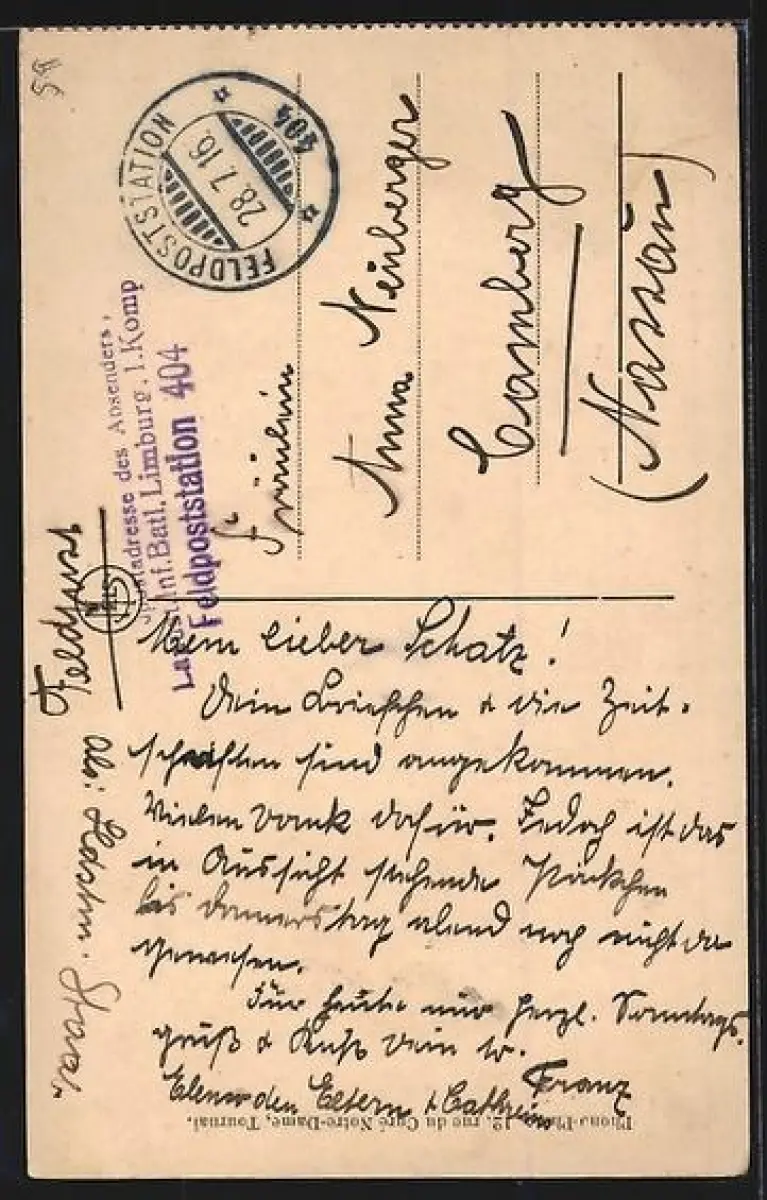 59
FELDPOSTSTATION
28.7.16.
404
Postadresse des Absenders,
Inf. Batl. Limburg, 1. Komp
Feldpoststation 404
Feldpost
Abs: Stora
Fräulein
Anna Neuberger
Camberg
(Nassau)
Mein lieber Schatz!
Dein Briefchen & die Zeit-
schriften sind angekommen.
Vielen Dank dafür. Jedoch ist das
in Aussicht stehende Päckchen
bis Donnerstag abend noch nicht da
gewesen.
Für heute nur herzl. Sonntags-
gruß & Kuß Dein tr.
Franz
den Eltern & Cathrein
12, rue du Curé Notre-Dame, Tournai.